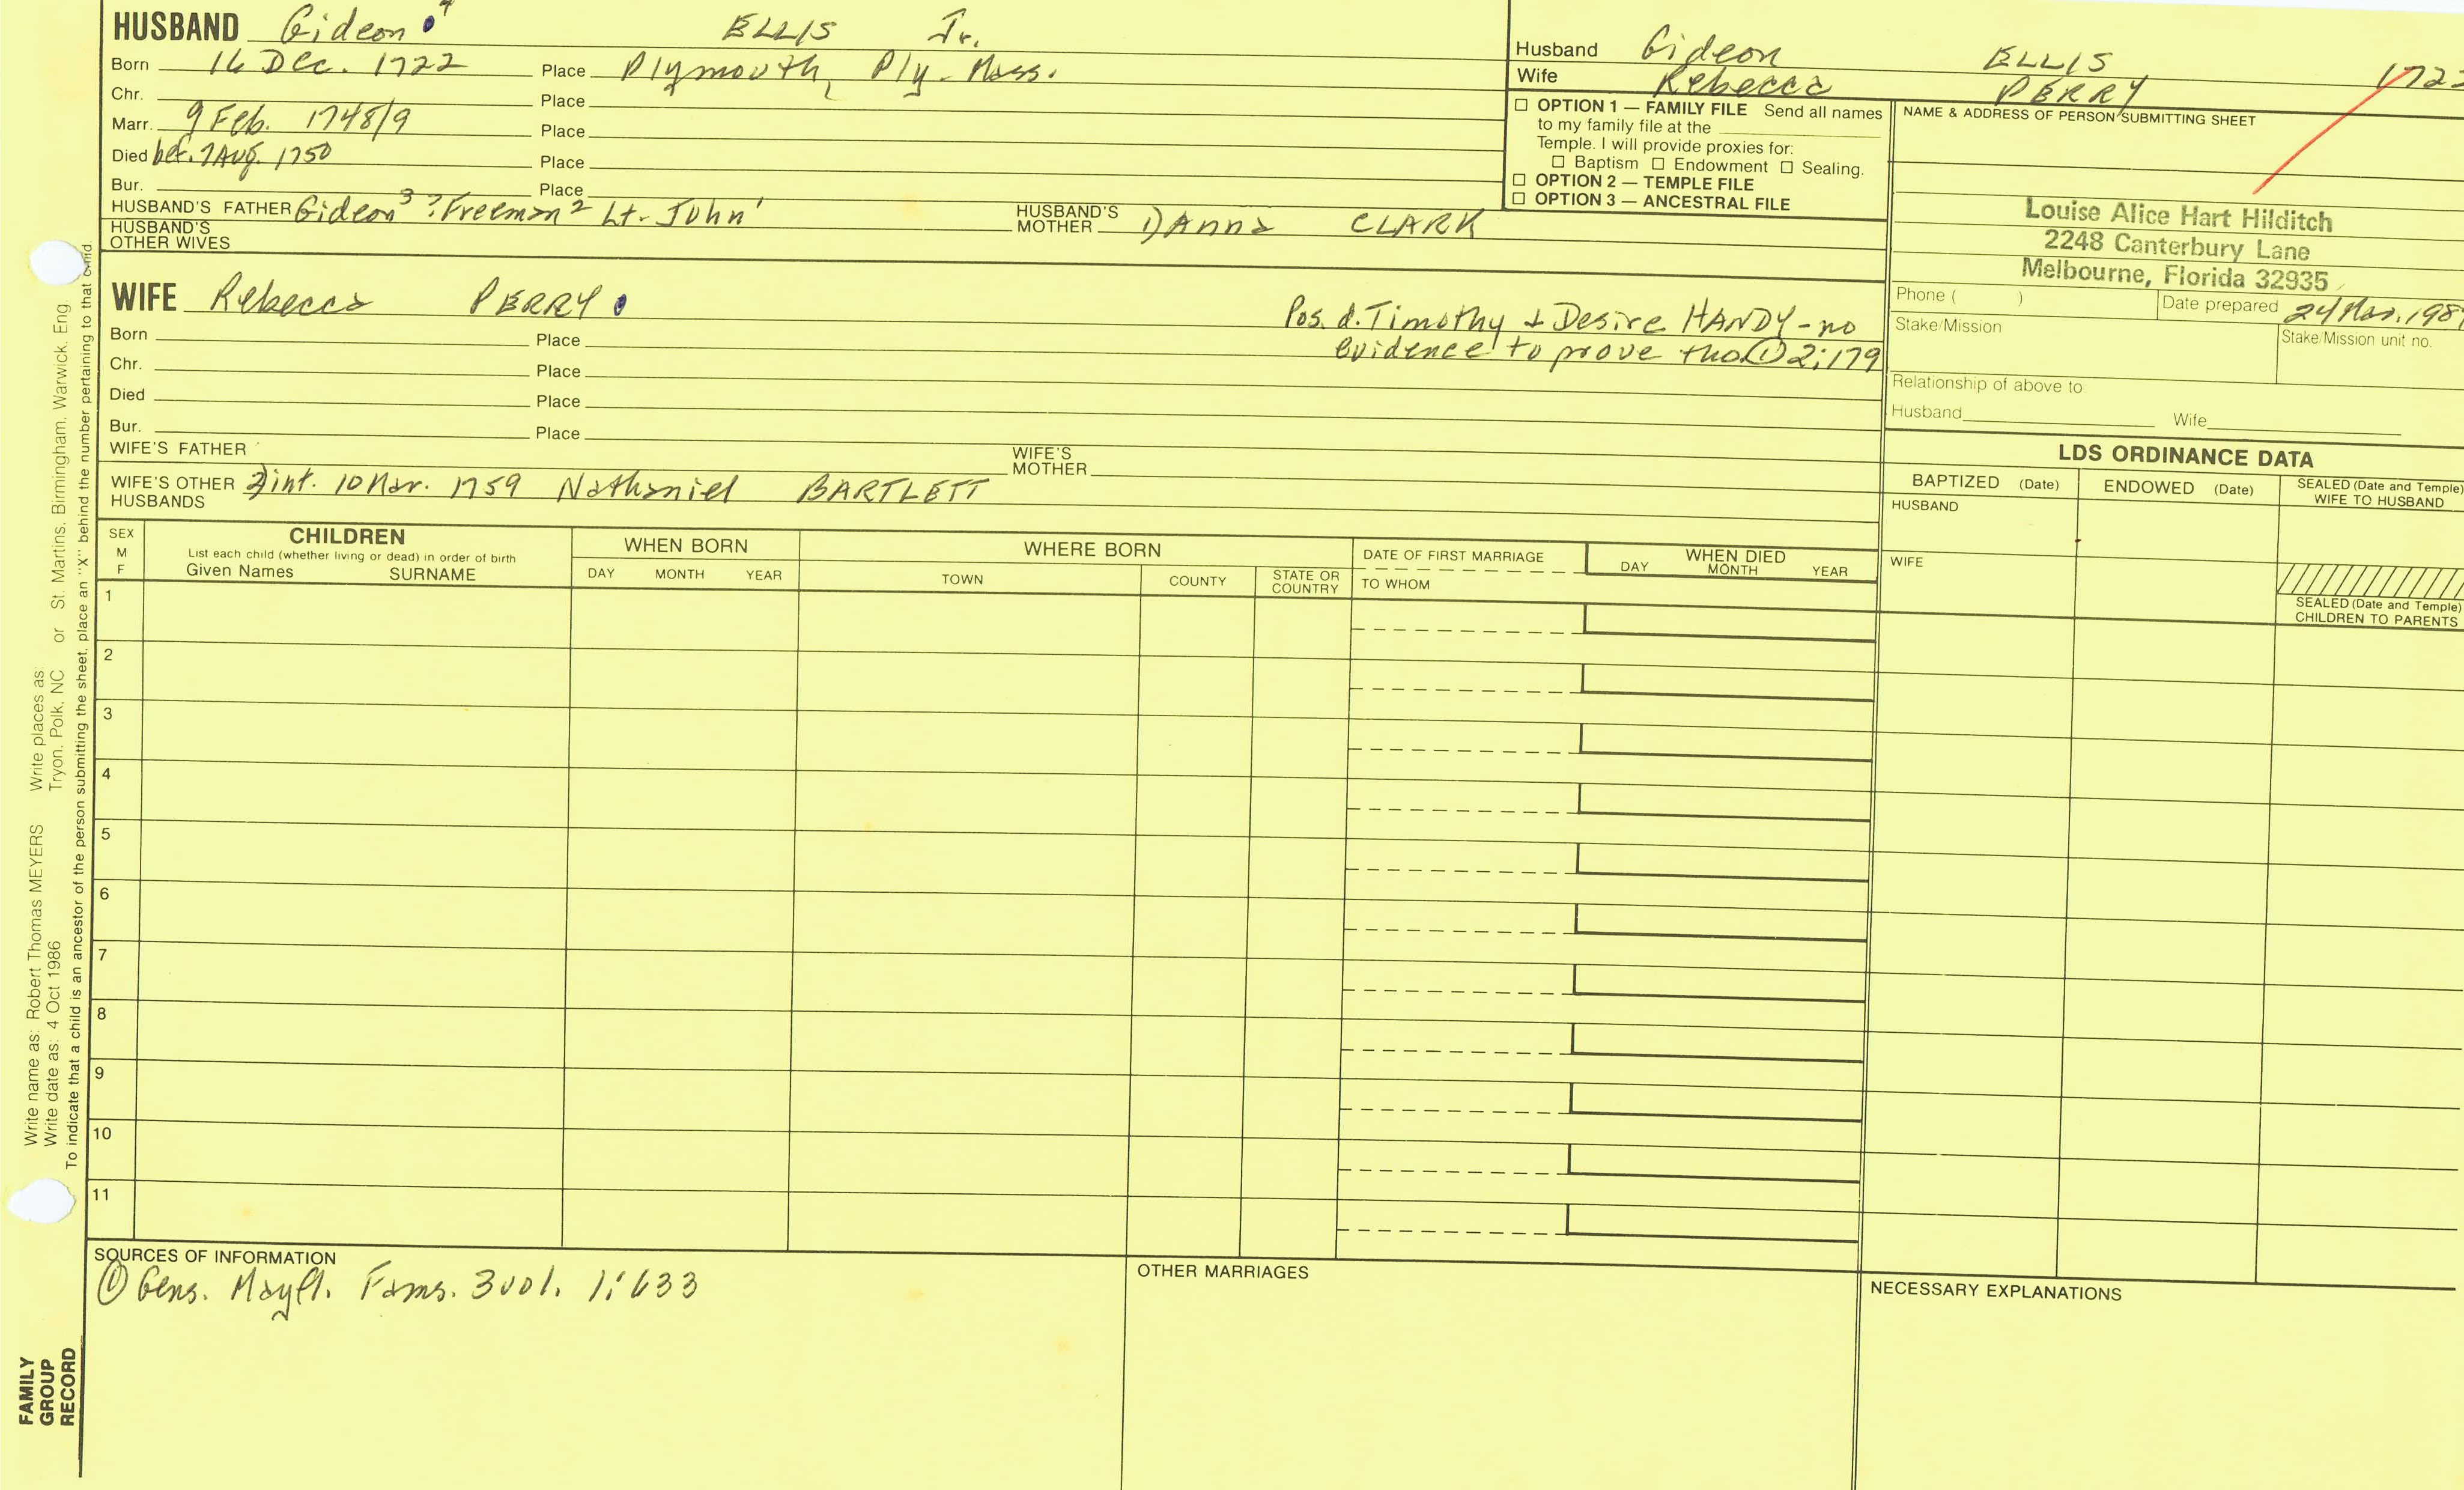 HUSBAND Gideon 4 ELLIS Jr.
Born 16 Dec. 1722 Place Plymouth, Ply. Mass.
Chr. Place
Marr. 9 Feb. 1748/9 Place
Died bef. 7 Aug. 1750 Place
Bur. Place
HUSBAND'S FATHER Gideon 3 ? Freeman 2 Lt. John 1 HUSBAND'S MOTHER 1) Anna CLARK
HUSBAND'S OTHER WIVES
Husband Gideon ELLIS 1722
Wife Rebecca PERRY
☐ OPTION 1 — FAMILY FILE Send all names
to my family file at the
Temple. I will provide proxies for:
☐ Baptism ☐ Endowment ☐ Sealing.
☐ OPTION 2 — TEMPLE FILE
☐ OPTION 3 — ANCESTRAL FILE
NAME & ADDRESS OF PERSON SUBMITTING SHEET
Louise Alice Hart Hilditch
2248 Canterbury Lane
Melbourne, Florida 32935
Phone ( ) Date prepared 24 Mar. 198
Stake/Mission Stake/Mission unit no.
Relationship of above to
Husband Wife
WIFE Rebecca PERRY
Pos. d. Timothy & Desire HANDY - no
evidence to prove tho ① 2:179
Born Place
Chr. Place
Died Place
Bur. Place
WIFE'S FATHER WIFE'S MOTHER
WIFE'S OTHER HUSBANDS int. 10 Mar. 1759 Nathaniel BARTLETT
LDS ORDINANCE DATA
BAPTIZED (Date) ENDOWED (Date) SEALED (Date and Temple) WIFE TO HUSBAND
HUSBAND
WIFE
SEALED (Date and Temple)
CHILDREN TO PARENTS
SEX M F
CHILDREN
List each child (whether living or dead) in order of birth
Given Names SURNAME
WHEN BORN
DAY MONTH YEAR
WHERE BORN
TOWN COUNTY STATE OR COUNTRY
DATE OF FIRST MARRIAGE
TO WHOM
WHEN DIED
DAY MONTH YEAR
1
2
3
4
5
6
7
8
9
10
11
SOURCES OF INFORMATION
① Gens. Mayfl. Fams. 3 vol. 1:633
OTHER MARRIAGES
NECESSARY EXPLANATIONS
Write name as: Robert Thomas MEYERS Write places as:
Write date as: 4 Oct 1986 Tryon, Polk, NC or St. Martins, Birmingham, Warwick, Eng
To indicate that a child is an ancestor of the person submitting the sheet, place an "X" behind the number pertaining to that child.
FAMILY
GROUP
RECORD